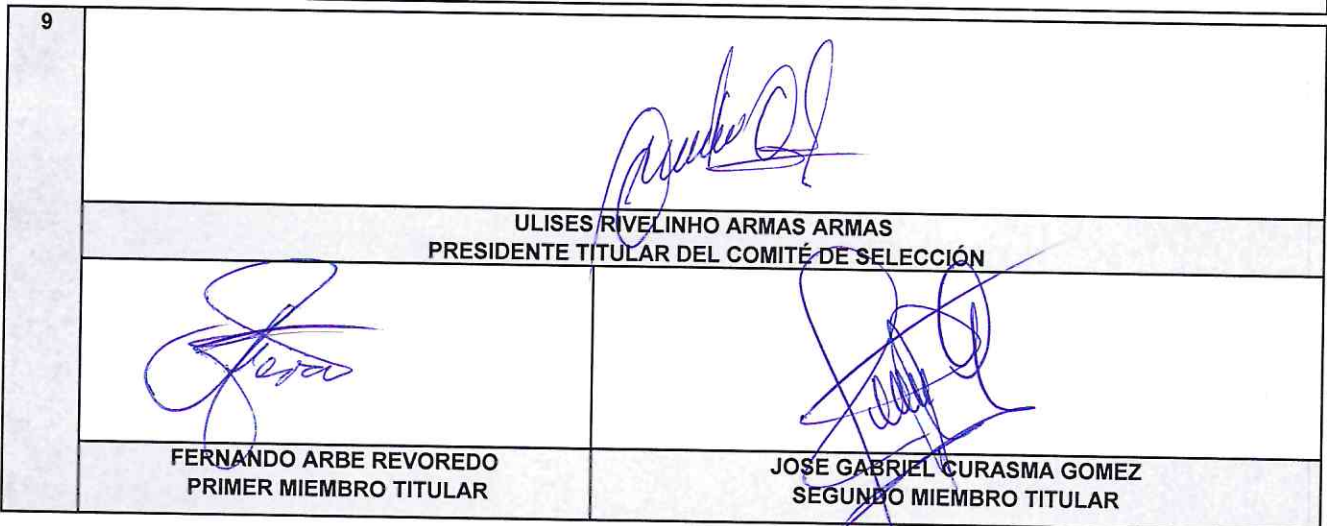 9
ULISES RIVELINHO ARMAS ARMAS
PRESIDENTE TITULAR DEL COMITÉ DE SELECCIÓN
FERNANDO ARBE REVOREDO
PRIMER MIEMBRO TITULAR
JOSE GABRIEL CURASMA GOMEZ
SEGUNDO MIEMBRO TITULAR